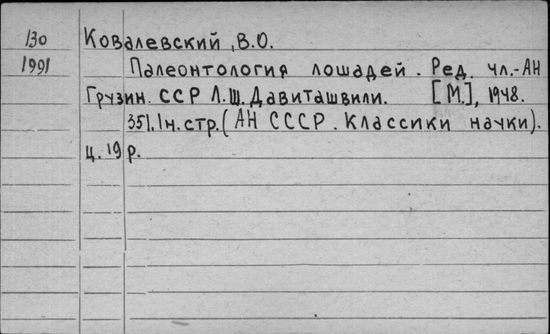 130 Ковалевский, В.О.
1991 Палеонтология лошадей. Ред. чл.-АН
Грузин. ССР Л.Ш. Давиташвили. [М.], 1948.
351. 1н. стр. (АН СССР. Классики науки).
ц. 19 р.